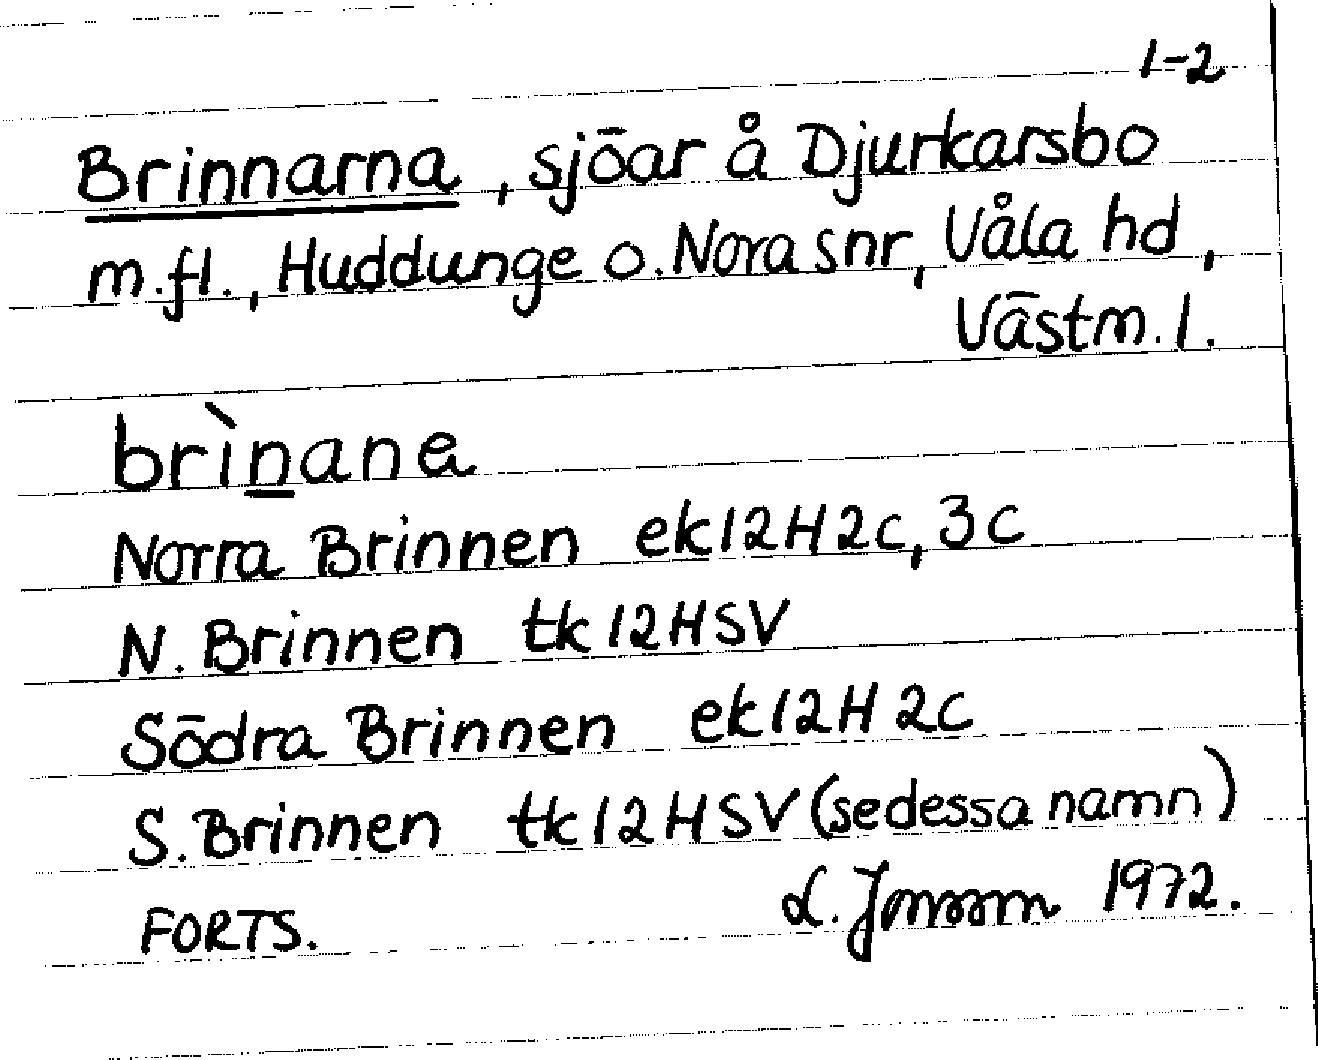 1-2
Brinnarna, sjöar å Djurkarsbo
m.fl., Huddunge o. Nora snr, Våla hd,
Västm. l.
brìnana
Norra Brinnen ek 12H 2c, 3c
N. Brinnen tk 12H SV
Södra Brinnen ek 12H 2c
S. Brinnen tk 12H SV (se dessa namn)
FORTS. L. Jonsson 1972.